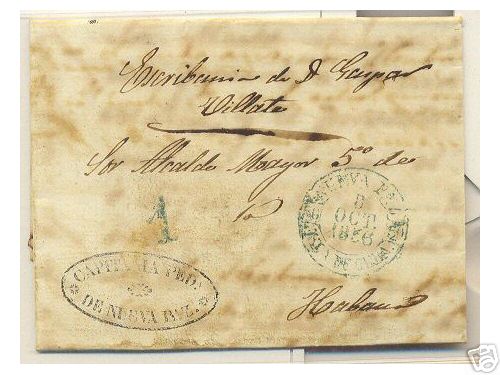 Escribania de D Gaspar
Villate
Sor Alcalde Mayor 5º de
la
Habana
1
NUEVA PAZ
8
OCT.
1856
CAPITANIA PEDA
DE NUEVA PAZ.